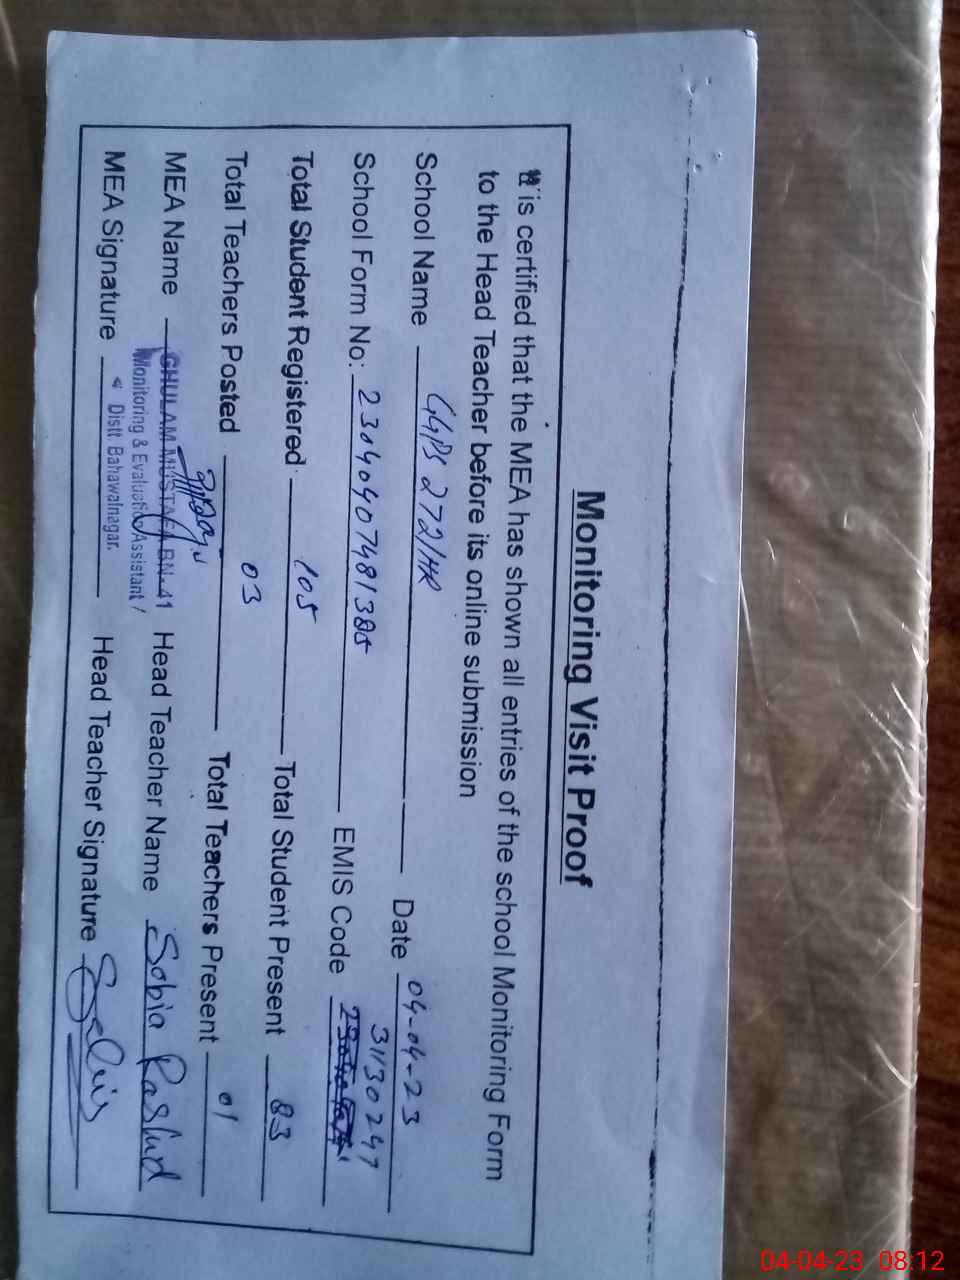 Monitoring Visit Proof
It is certified that the MEA has shown all entries of the school Monitoring Form
to the Head Teacher before its online submission
School Name GGPS 272/HR Date 04-04-23
School Form No: 23040407481385 EMIS Code 31130247
Total Student Registered 105 Total Student Present 83
Total Teachers Posted 03 Total Teachers Present 01
MEA Name GHULAM MUSTAFA BN-41 Head Teacher Name Sobia Rashid
Monitoring & Evaluation Assistant /
Distt. Bahawalnagar.
MEA Signature Head Teacher Signature
04-04-23 08:12